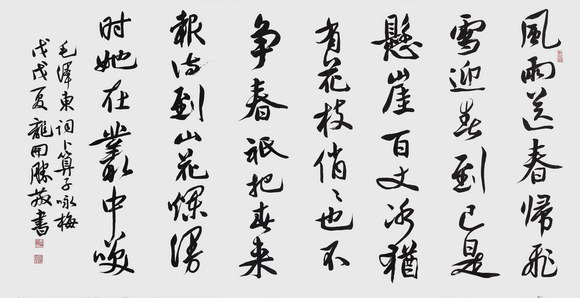 風雨送春歸飛
雪迎春到已是
懸崖百丈冰猶
有花枝俏〻也不
争春祇把春来
報待到山花爛漫
时她在叢中咲
毛澤東词卜算子咏梅
戊戌夏龍開勝敬書